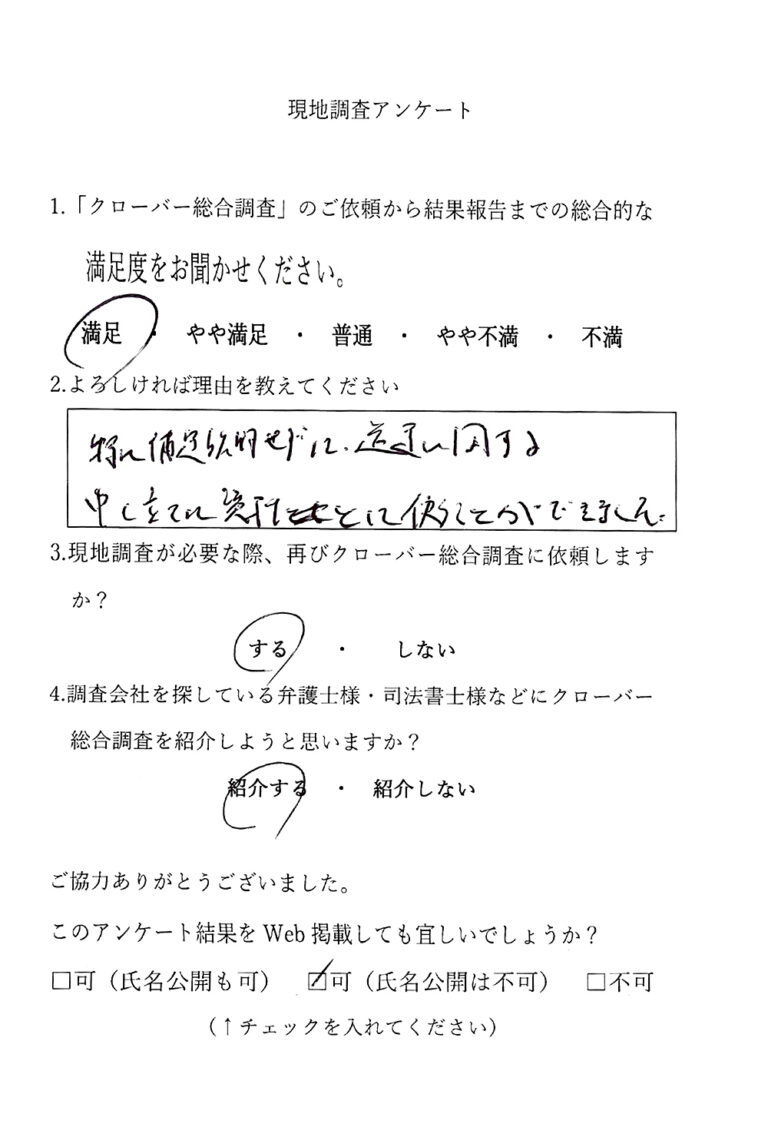 現地調査アンケート
1.「クローバー総合調査」のご依頼から結果報告までの総合的な
満足度をお聞かせください。
満足 ・ やや満足 ・ 普通 ・ やや不満 ・ 不満
2.よろしければ理由を教えてください
特に補足説明せずに、送達に関する
申し立てに資料として使うことができました
3.現地調査が必要な際、再びクローバー総合調査に依頼します
か？
する ・ しない
4.調査会社を探している弁護士様・司法書士様などにクローバー
総合調査を紹介しようと思いますか？
紹介する ・ 紹介しない
ご協力ありがとうございました。
このアンケート結果を Web 掲載しても宜しいでしょうか？
□可（氏名公開も可） ☑可（氏名公開は不可） □不可
（↑チェックを入れてください）